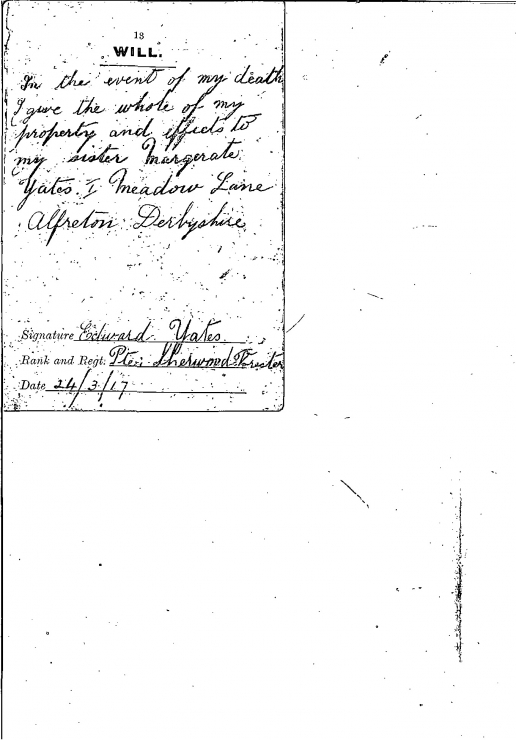 13
WILL.
In the event of my death
I give the whole of my
property and effects to
my sister Margerate
Yates. I Meadow Lane
Alfreton Derbyshire
Signature Edward Yates
Rank and Regt. Pte. Sherwood Forester
Date 24/3/17